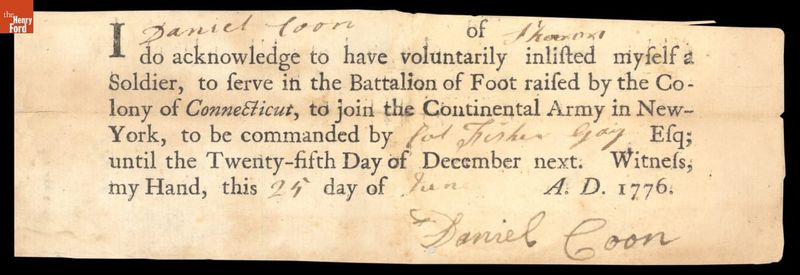 the
Henry
Ford
I Daniel Coon of
do acknowledge to have voluntarily inliſted myſelf a
Soldier, to ſerve in the Battalion of Foot raiſed by the Co-
lony of Connecticut, to join the Continental Army in New-
York, to be commanded by Col Fisher Gay Eſq;
until the Twenty-fifth Day of December next. Witneſs,
my Hand, this 25 day of June A. D. 1776.
Daniel Coon